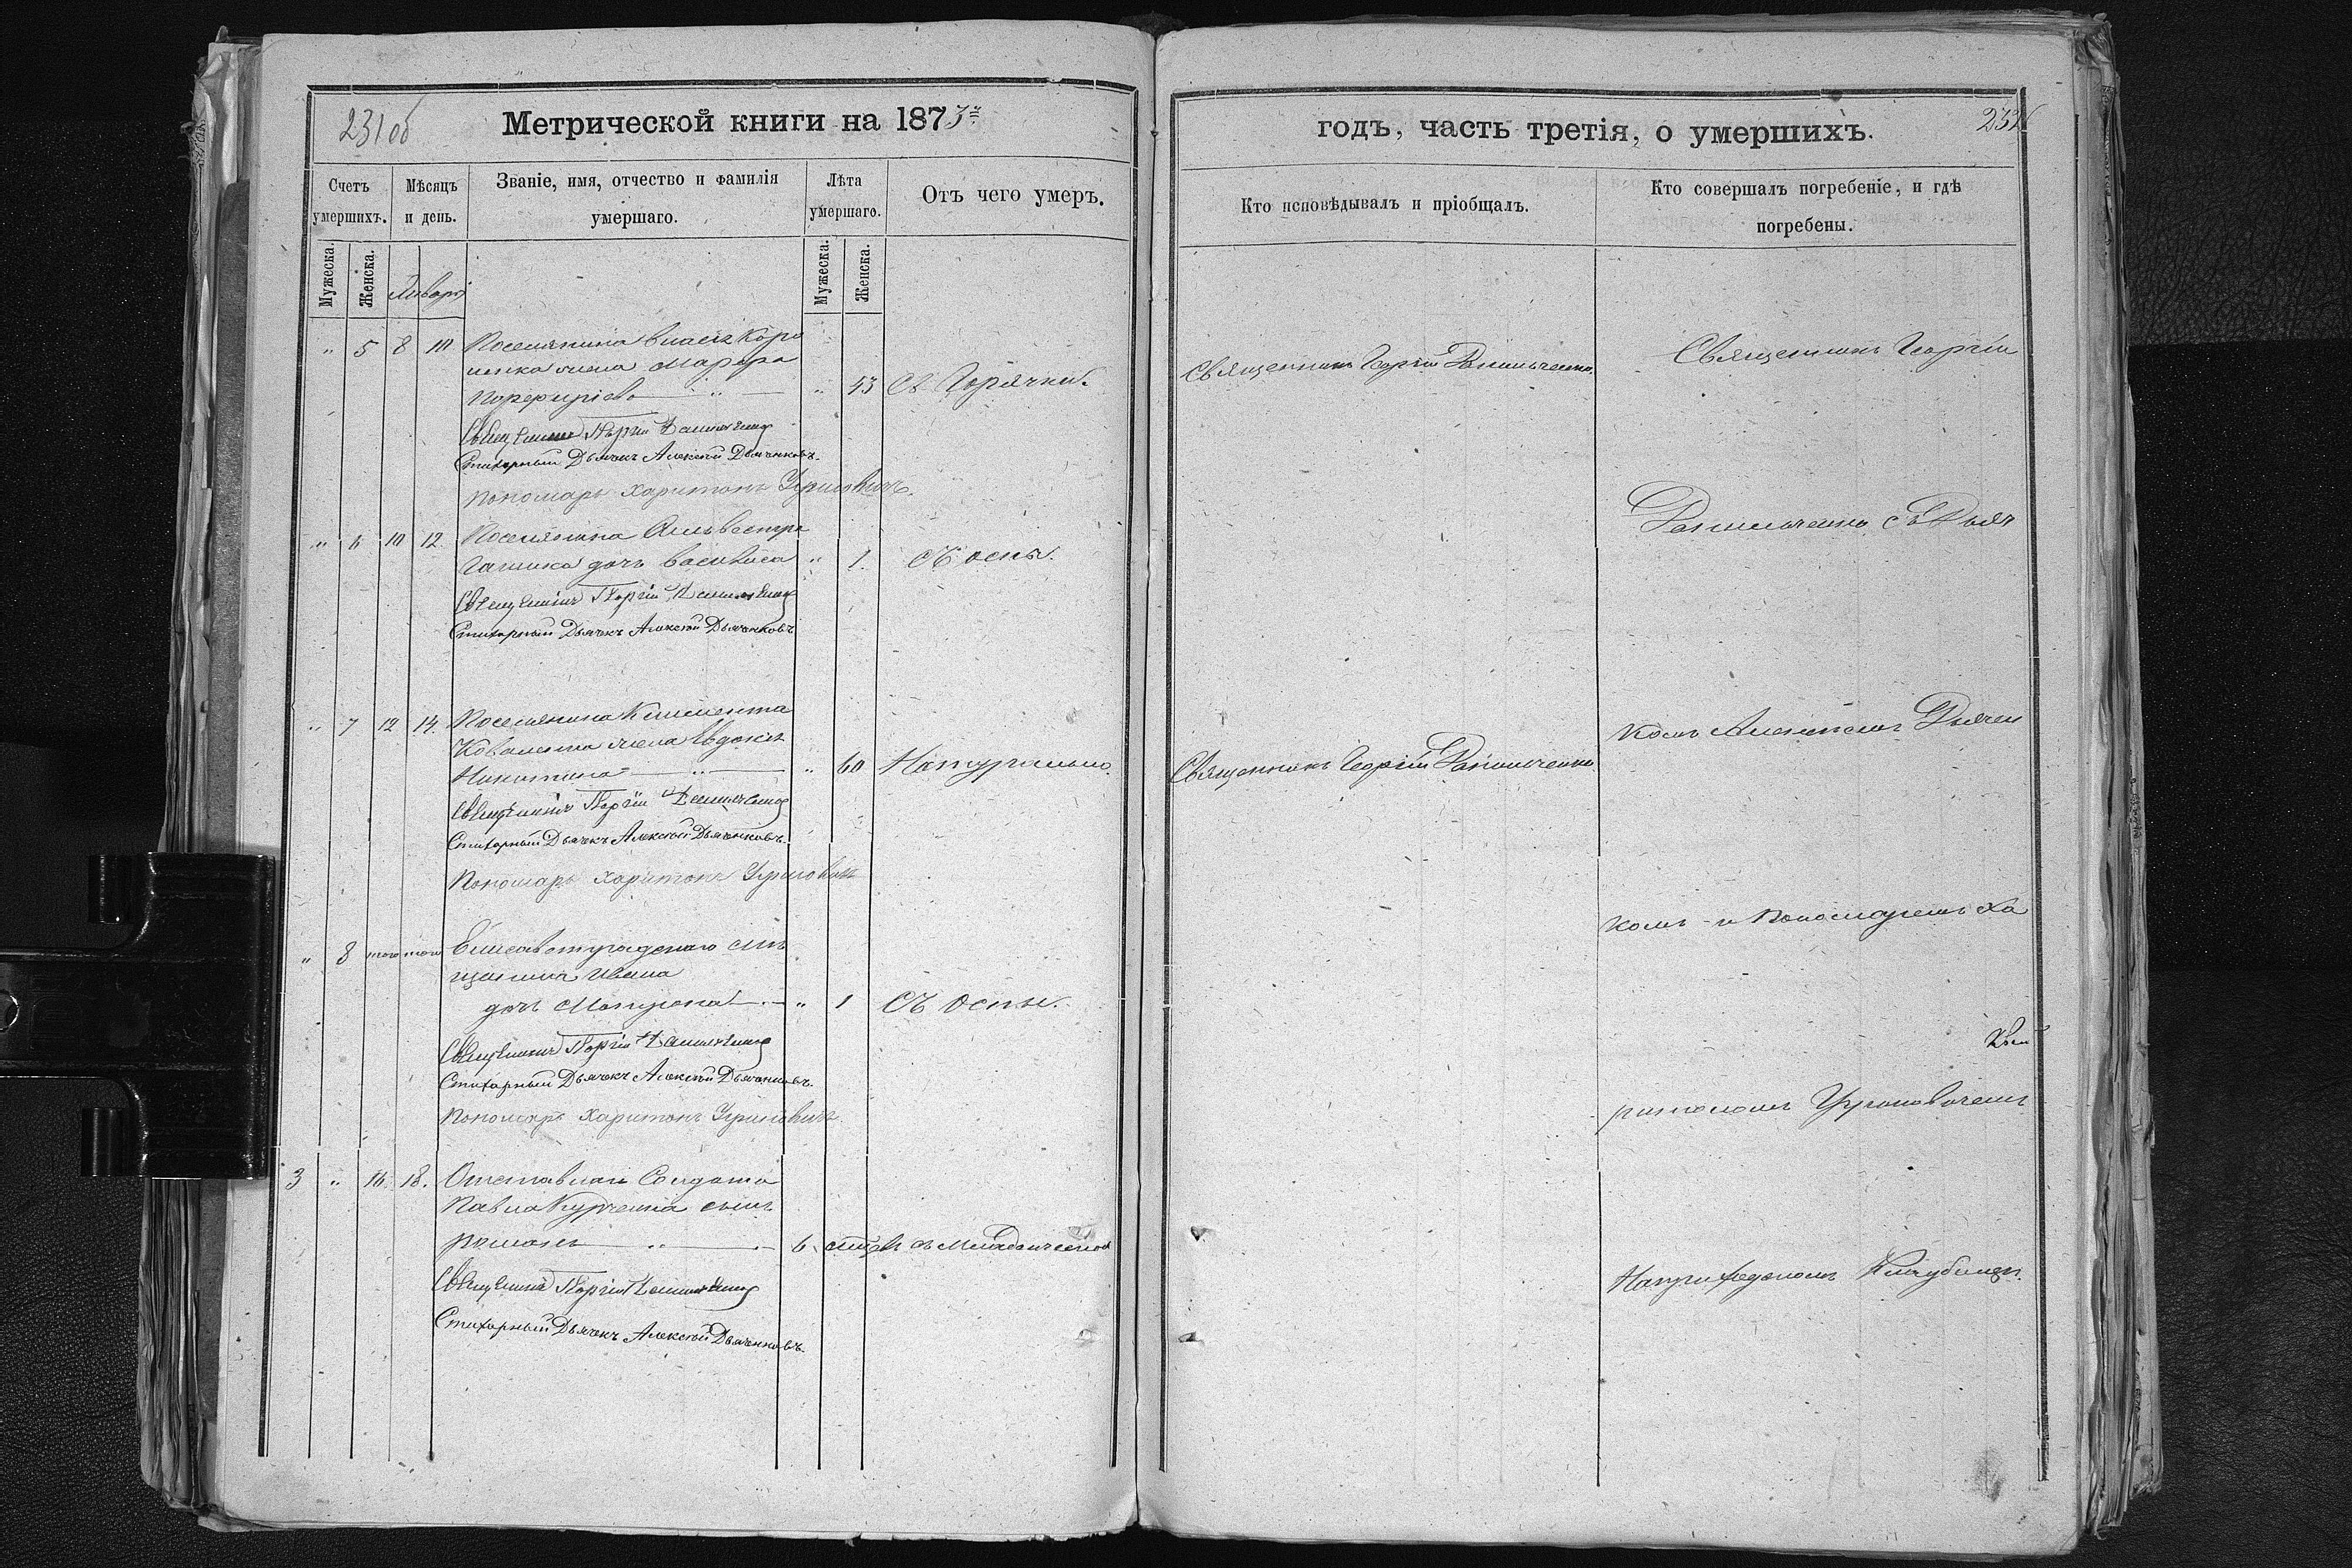 231об
Метрической книги на 1873й
Счетъ умершихъ.
Мѣсяцъ и день.
Званіе, имя, отчество и фамилія умершаго.
Лѣта умершаго.
Отъ чего умеръ.
Мужеска.
Женска.
Январь
Мужеска.
Женска.
" 5 8 10 Поселянина Власія Коро
ленка жена Марфа
Порфиріева " 53 Съ Горячки.
Священникъ Георгій Данильченко
Стихарный Дьячекъ Алексѣй Дьяченковъ.
Пономарь Харитонъ Угриновичъ.
" 6 10 12. Поселянина Сильвестра
дочь Василиса " 1. Съ оспы.
Священникъ Георгій Данильченко
Стихарный Дьячекъ Алексѣй Дьяченковъ
" 7 12 14. Поселянина Климента
Коваленка жена Евдокія
Никитина " 60 Натурально.
Священникъ Георгій Данильченко
Стихарный Дьячекъ Алексѣй Дьяченковъ.
Пономарь Харитонъ Угриновичъ
" 8 того того Елисаветградскаго мѣ
щанина Ивана
дочь Матрона " 1 Съ Оспы.
Священникъ Георгій Данильченко
Стихарный Дьячекъ Алексѣй Дьяченковъ.
Пономарь Харитонъ Угриновичъ
3 " 16. 18. Отставнаго Солдата
Павла сынъ
Романъ 6. мѣся съ Младенческой
Священникъ Георгій Данильченко
Стихарный Дьячекъ Алексѣй Дьяченковъ.
годъ, часть третія, о умершихъ.
232
Кто исповѣдывалъ и пріобщалъ.
Кто совершалъ погребеніе, и гдѣ погребены.
Священникъ Георгій Данильченко.
Священникъ Георгій Данильченко.
Священникъ Георгій
Данильченко съ Дьяч
комъ Алексѣемъ Дьячен
комъ и Пономаремъ Ха
ритономъ Угриновичемъ
На приходскомъ Кладбищѣ.